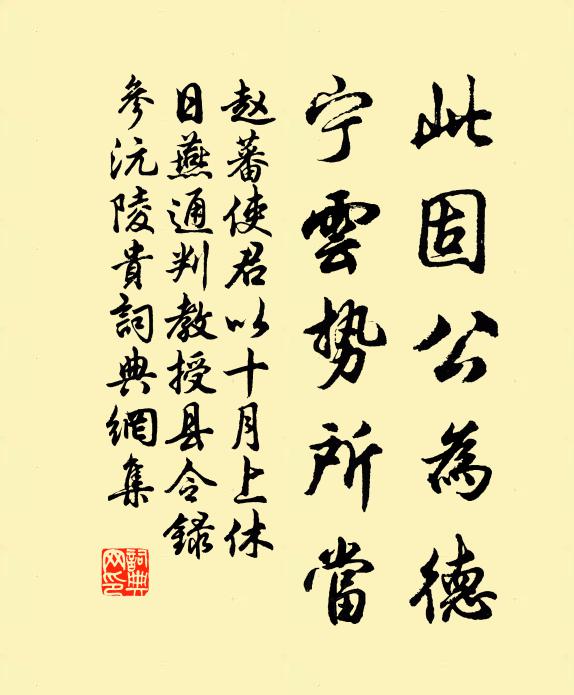 此固公為德
宁雲勢所當
赵蕃使君以十月上休
日燕通判教授县令錄
參沅陵貴詞典網集
詞典網印